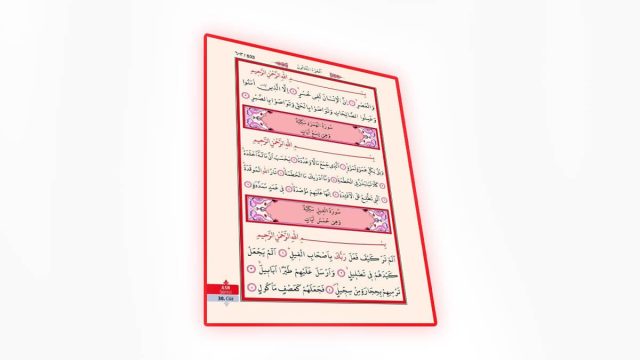 ٦٠٣ / 603
بِسْمِ اللّٰهِ الرَّحْمٰنِ الرَّحِيمِ
وَالْعَصْرِ ۝ اِنَّ الْاِنْسَانَ لَفِي خُسْرٍ ۝ اِلَّا الَّذِينَ اٰمَنُوا
وَعَمِلُوا الصَّالِحَاتِ وَتَوَاصَوْا بِالْحَقِّ وَتَوَاصَوْا بِالصَّبْرِ ۝
سُورَةُ الْهُمَزَةِ مَكِّيَّةٌ
وَهِيَ تِسْعُ اٰيَاتٍ
بِسْمِ اللّٰهِ الرَّحْمٰنِ الرَّحِيمِ
وَيْلٌ لِكُلِّ هُمَزَةٍ لُمَزَةٍ ۝ اَلَّذِي جَمَعَ مَالًا وَعَدَّدَهُ ۝ يَحْسَبُ اَنَّ مَالَهُ اَخْلَدَهُ ۝
كَلَّا لَيُنْبَذَنَّ فِي الْحُطَمَةِ ۝ وَمَا اَدْرٰيكَ مَا الْحُطَمَةُ ۝ نَارُ اللّٰهِ الْمُوقَدَةُ ۝
اَلَّتِي تَطَّلِعُ عَلَى الْاَفْئِدَةِ ۝ اِنَّهَا عَلَيْهِمْ مُؤْصَدَةٌ ۝ فِي عَمَدٍ مُمَدَّدَةٍ ۝
سُورَةُ الْفِيلِ مَكِّيَّةٌ
وَهِيَ خَمْسُ اٰيَاتٍ
بِسْمِ اللّٰهِ الرَّحْمٰنِ الرَّحِيمِ
اَلَمْ تَرَ كَيْفَ فَعَلَ رَبُّكَ بِاَصْحَابِ الْفِيلِ ۝ اَلَمْ يَجْعَلْ
كَيْدَهُمْ فِي تَضْلِيلٍ ۝ وَاَرْسَلَ عَلَيْهِمْ طَيْرًا اَبَابِيلَ ۝
تَرْمِيهِمْ بِحِجَارَةٍ مِنْ سِجِّيلٍ ۝ فَجَعَلَهُمْ كَعَصْفٍ مَأْكُولٍ ۝
ASR
30. Cüz